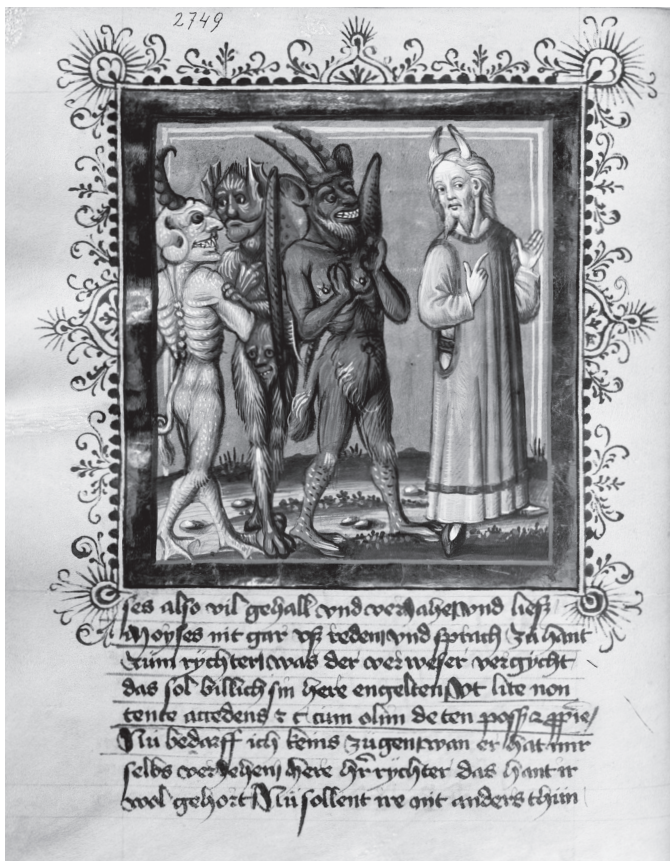 2749
ses also vil gehalt vnd verjahet vnd liesz
Moyses nit gar vsz reden vnd sprach zu hant
zum rychter was der verweser vergycht
das sol billich sin here engelten Vt lite non
cum olim de
Nu bedarff ich keins zugen wan er hat mir
selbs verjehen here hr rychter das hant ir
wol gehort Nu sollent ire nit anders thun